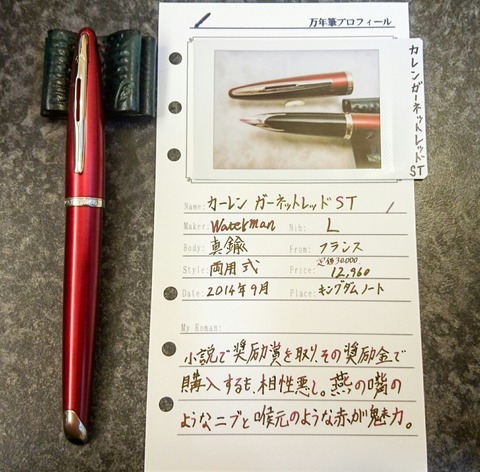 万年筆プロフィール
カレンガーネットレッドST
Name: カーレン ガーネットレッドST
Maker: Waterman Nib: L
Body: 真鍮 From: フランス
定価30,000
Style: 両用式 Price: 12,960
Date: 2014年9月 Place: キングダムノート
My Roman:
小説で奨励賞を取り、その奨励金で
購入するも、相性悪し。燕の嘴の
ようなニブと喉元のような赤が魅力。